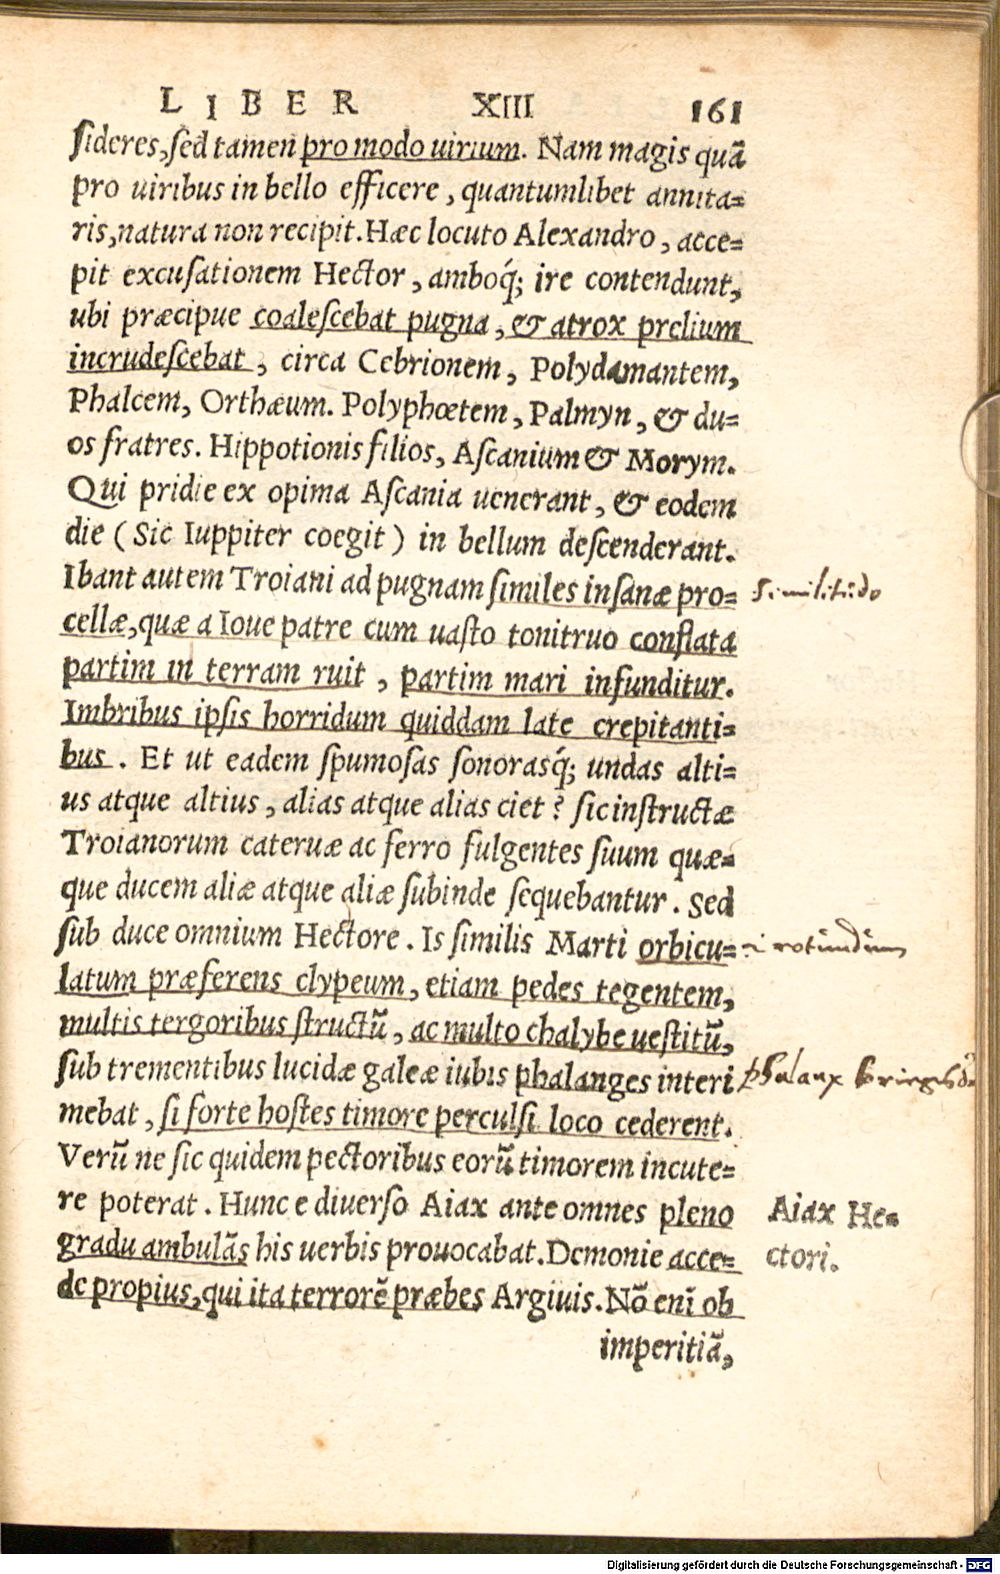 LIBER XIII 161
sideres, sed tamen pro modo uirium. Nam magis quā
pro uiribus in bello efficere, quantumlibet annita=
ris, natura non recipit. Hæc locuto Alexandro, acce=
pit excusationem Hector, amboq́; ire contendunt,
ubi præcipue coalescebat pugna, & atrox prelium
incrudescebat, circa Cebrionem, Polydamantem,
Phalcem, Orthæum. Polyphœtem, Palmyn, & du=
os fratres. Hippotionis filios, Ascanium & Morym.
Qui pridie ex opima Ascania uenerant, & eodem
die (Sic Iuppiter coegit) in bellum descenderant.
Ibant autem Troiani ad pugnam similes insanæ pro= similitudo
cellæ, quæ a Ioue patre cum uasto tonitruo conflata
partim in terram ruit, partim mari infunditur.
Imbribus ipsis horridum quiddam late crepitanti=
bus. Et ut eadem spumosas sonorasq́; undas alti=
us atque altius, alias atque alias ciet? sic instructæ
Troianorum cateruæ ac ferro fulgentes suum quæ=
que ducem aliæ atque aliæ subinde sequebantur. Sed
sub duce omnium Hectore. Is similis Marti orbicu= .i rotundum
latum præferens clypeum, etiam pedes tegentem,
multis tergoribus structū, ac multo chalybe uestitū,
sub trementibus lucidæ galeæ iubis phalanges interi phalanx
mebat, si forte hostes timore perculsi loco cederent.
Verū ne sic quidem pectoribus eorū timorem incute=
re poterat. Hunc e diuerso Aiax ante omnes pleno Aiax He=
gradu ambulās his uerbis prouocabat. Demonie acce= ctori.
de propius, qui ita terrorē præbes Argiuis. Nō enī ob
imperitiā,
Digitalisierung gefördert durch die Deutsche Forschungsgemeinschaft - DFG